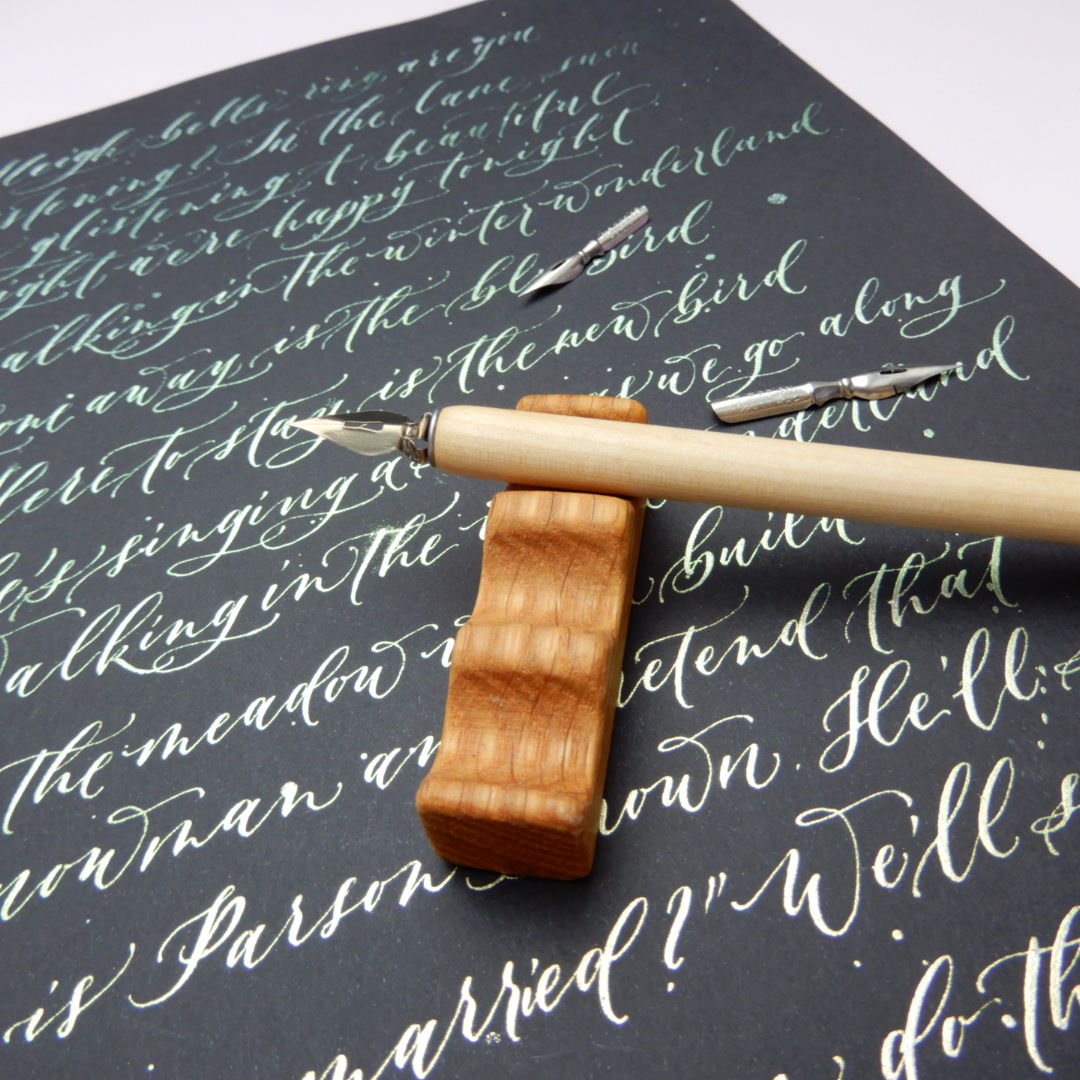 sleigh bells ring, are you
listening? In the lane, snow
glistening. A beautiful
night we're happy tonight
walking in the winter wonderland
away, is the bluebird
here to stay is the new bird
he's singing as we go along
walking in the wonderland
the meadow build
snowman and pretend that
is Parson Brown. He'll
married?" We'll
do th